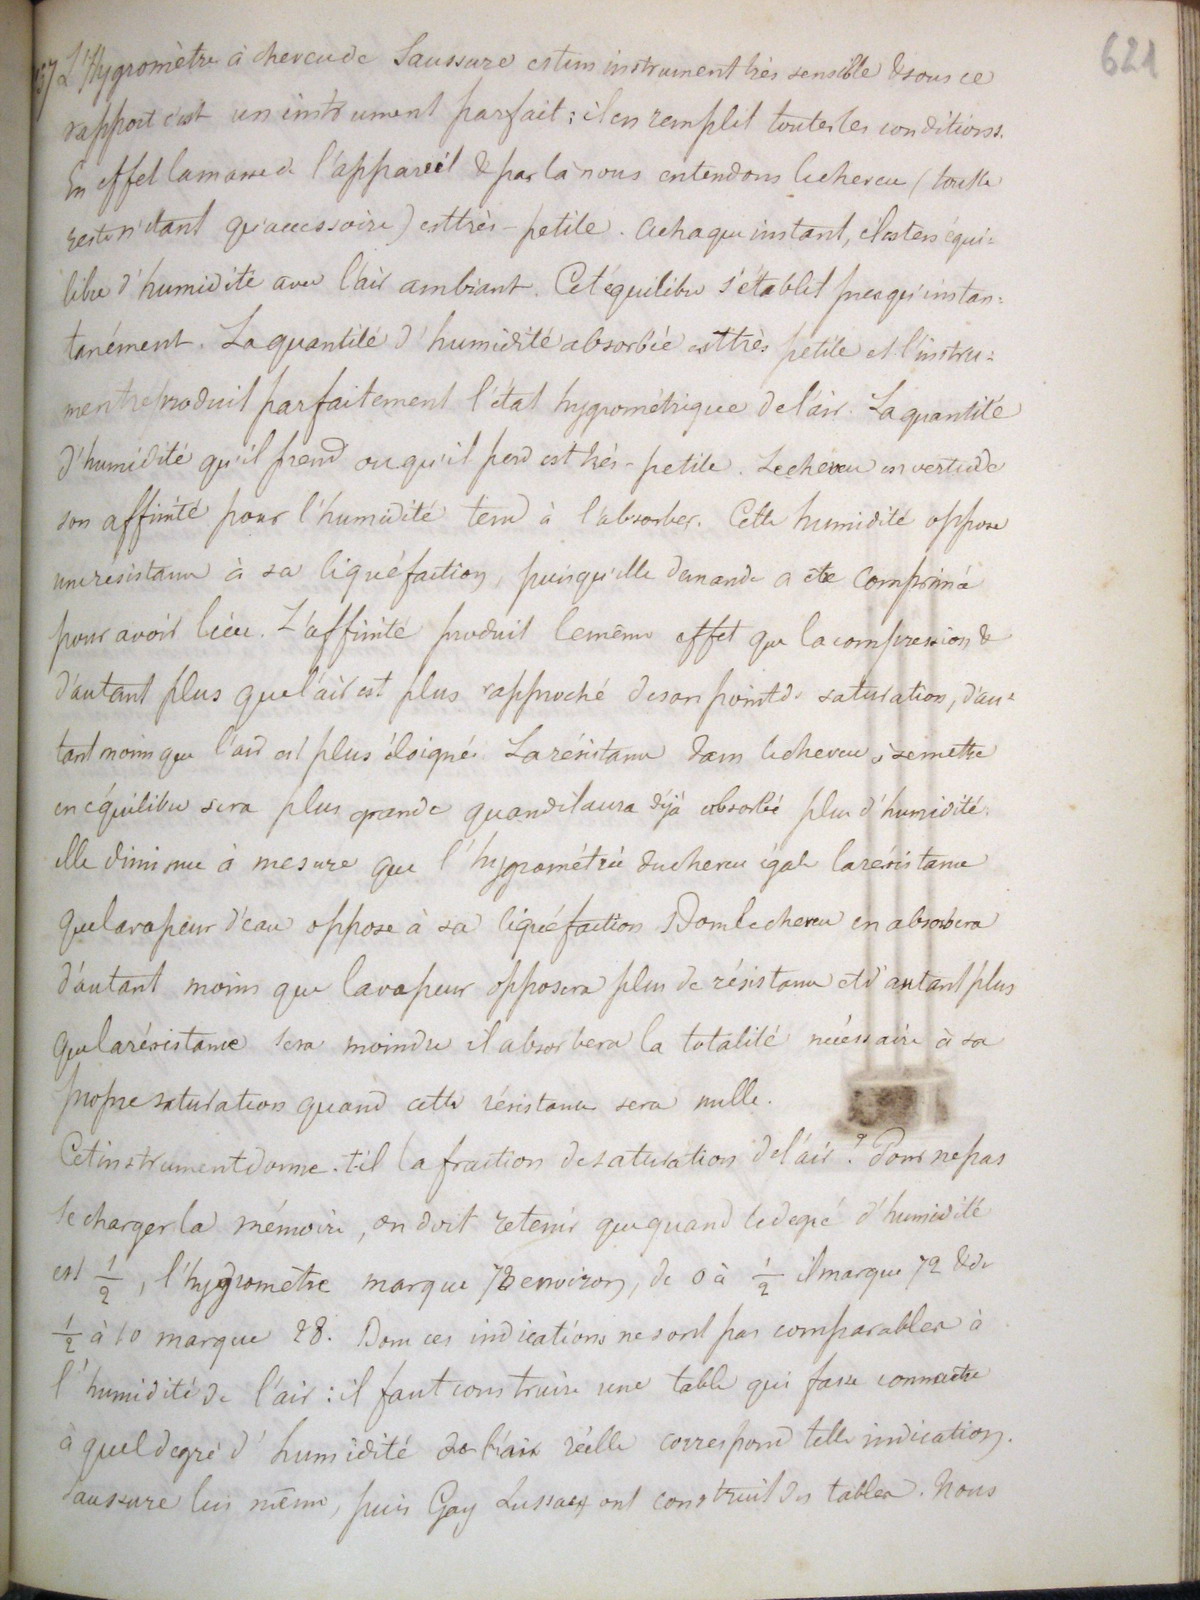 621
157 L'Hygromètre à cheveu de Saussure est un instrument très sensible & sous ce
rapport c'est un instrument parfait ; il en remplit toutes les conditions.
En effet la masse de l'appareil & par là nous entendons le cheveu (tout le
reste n'étant qu'accessoire) est très-petite. A chaque instant, il est en équi=
libre d'humidité avec l'air ambiant. Cet équilibre s'établit presqu'instan=
tanément. La quantité d'humidité absorbée est très petite et l'instru=
ment reproduit parfaitement l'état hygrométrique de l'air. La quantité
d'humidité qu'il prend ou qu'il perd est très-petite. Le cheveu en vertu de
son affinité pour l'humidité tend à l'absorber. Cette humidité oppose
une résistance à sa liquéfaction, puisqu'elle demande a être comprimé
pour avoir lieu. L'affinité produit le même effet que la compression &
d'autant plus que l'air est plus rapproché de son point de saturation, d'au=
tant moins que l'air est plus éloigné. La résistance dans le cheveu à se mettre
en équilibre sera plus grande quand il aura déjà absorbé plus d'humidité.
elle diminue à mesure que l'hygrométrie du cheveu égale la résistance
que la vapeur d'eau oppose à sa liquéfaction Donc le cheveu en absorbera
d'autant moins que la vapeur opposera plus de résistance et d'autant plus
que la résistance sera moindre il absorbera la totalité nécessaire à sa
propre saturation quand cette résistance sera nulle.
Cet instrument donne-t-il la fraction de saturation de l'air ? Pour ne pas
se charger la mémoire, on doit retenir que quand le degré d'humidité
est 1/2, l'hygromètre marque 72 environ, de 0 à 1/2 il marque 72 & de
1/2 à 10 marque 28. Donc ces indications ne sont pas comparables à
l'humidité de l'air : il faut construire une table qui fasse connaître
à quel degré d'humidité de l'air réelle correspond telle indication.
Saussure lui même, puis Gay Lussac ont construit des tables. Nous